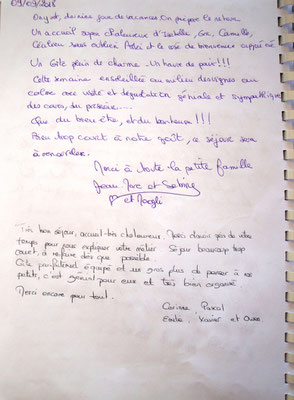 09/09/2018
dernier jour de vacances. On prépare le retour.
Un accueil super chaleureux d'Isabelle, Eric, Camille,
sans oublier et le verre de bienvenue apprécié
Un Gîte plein de charme. Un havre de paix!!!
Cette semaine ensoleillée au milieu des vignes au
calme avec visite et dégustation géniale et sympathique
des caves, du pressoir....
Que du bien être, et du bonheur!!!
Bien trop court à notre goût, ce séjour son
à renouveler.
Merci à toute la petite famille
Jean Marc et Sabine
et
Très bon séjour, accueil très chaleureux. Merci d'avoir pris de votre
temps pour nous expliquer votre métier. Séjour beaucoup trop
court, à refaire dès que possible.
Gîte parfaitement équipé et un gros plus de penser à nos
petits, c'est génial pour eux et très bien organisé
Merci encore pour tout.
Corinne Pascal
Xavier et